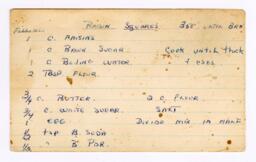 RAISIN SQUARES 350 UNTIL BRN
1 C. RAISINS
1 C BROWN SUGAR Cook until thick
1 C BOILING WATER & COOL
2 TBSP FLOUR
3/4 C. BUTTER 2 C. FLOUR
3/4 C WHITE SUGAR SALT
1 EGG DIVIDE MIX IN HALF
1/2 tsp B. SODA
1/2 " B PDR.